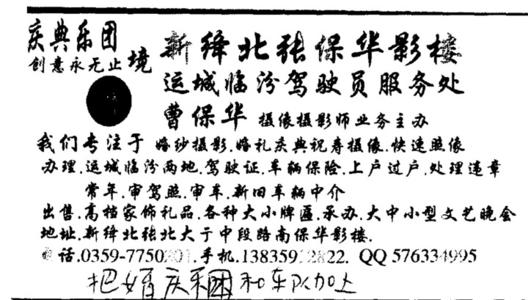 庆典乐团
创意永无止境
新绛北张保华影楼
运城临汾驾驶员服务处
曹保华 摄像摄影师业务主办
我们专注于 婚纱摄影.婚礼庆典祝寿摄像.快速照像
办理.运城临汾两地.驾驶证.车辆保险.上户过户.处理违章
常年.审驾照.审车.新旧车辆中介
出售.高档家饰礼品.各种大小牌匾.承办.大中小型文艺晚会
地址.新绛北张北大于中段路南保华影楼.
话.0359-7750 手机.138359 822. QQ 576334995
把婚庆乐团和车队加上